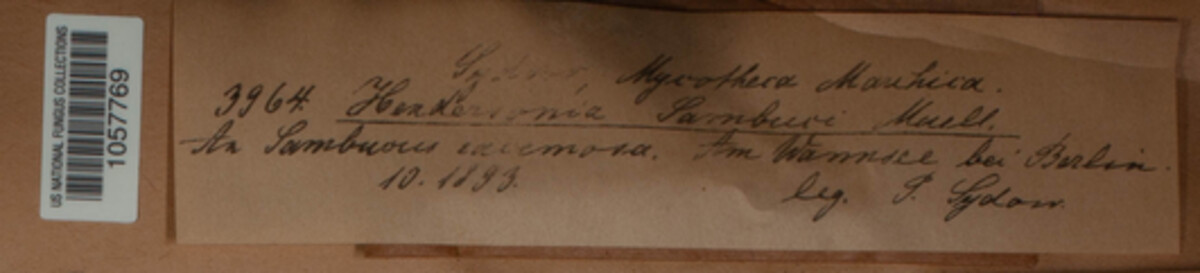 US NATIONAL FUNGUS COLLECTIONS
1057769
Sydow, Mycotheca Marchica.
3964 Hendersonia Sambuci Muell.
An Sambucus racemosa. Am Wannsee bei Berlin.
10. 1893.
leg. P. Sydow.